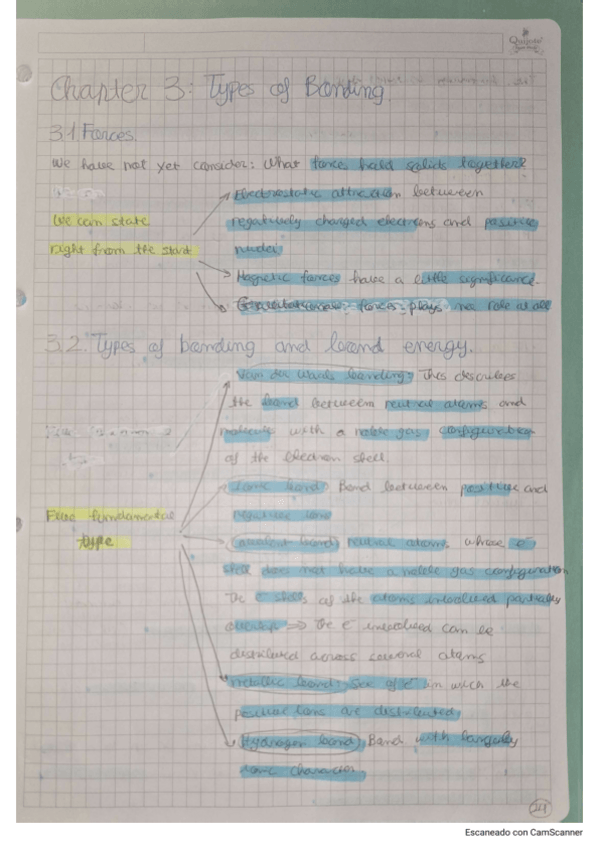 Chapter 3: Types of Bonding
3.1 Forces.
We have not yet consider: What force hold solids together?
We can state
right from the start
Electrostatic attraction between
negatively charged electrons and positive
nuclei
Magnetic forces have a little significance.
Gravitational forces plays no role at all
3.2. Types of bonding and bond energy.
Five fundamental
type
Van der Waals bonding: This describes
the bond between neutral atoms and
molecule with a noble gas configuration
of the electron shell.
Ionic bond: Bond between positive and
negative ions
Covalent bond: neutral atoms whose e-
shell does not have a noble gas configuration
The e- shells of the atoms involved partially
overlap => the e- involved can be
distributed across several atoms
metallic bond: Sea of e- in which the
positive ions are distributed.
Hydrogen bond: Bond with largely
ionic character.
24
Escaneado con CamScanner